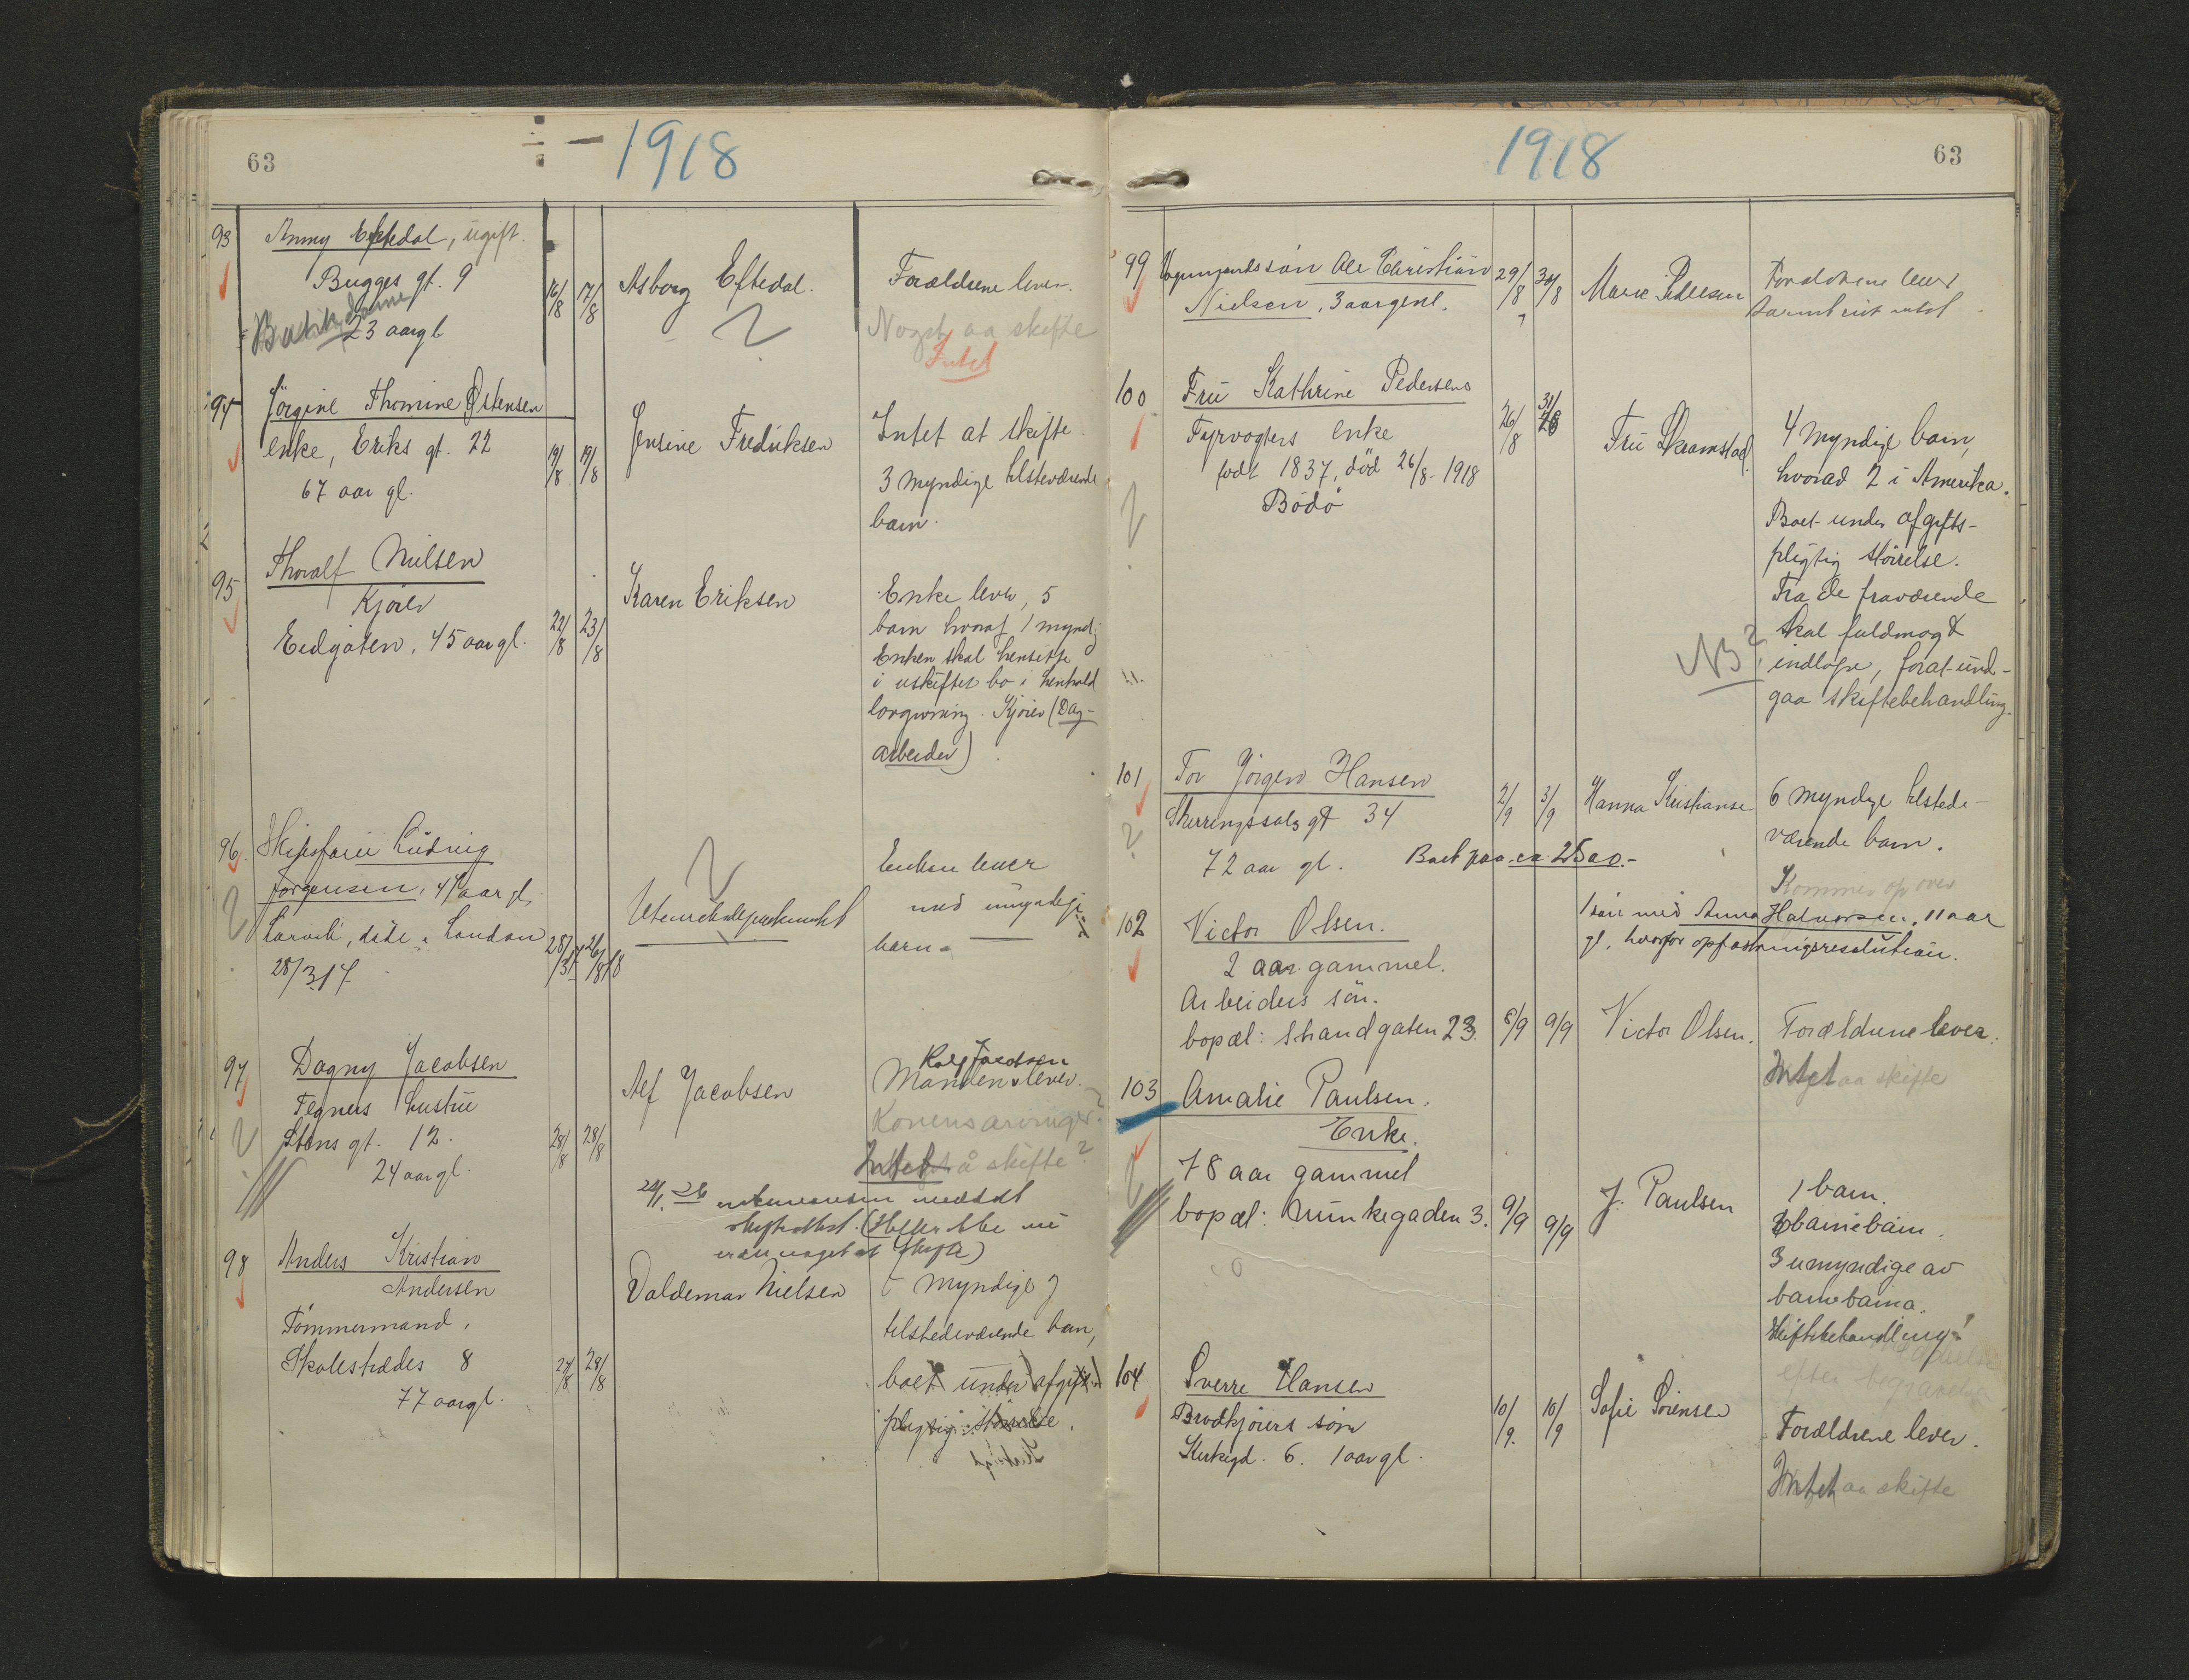 63
1918
93
Anny Eftedal, ugift.
Bugges gt. 9
Butikdame
23 aargl
16/8
17/8
Asborg Eftedal.
?
Forældrene lever.
Noget aa skifte
Intet
94
Jörgine Thomine Østensen
enke, Eriks gt. 22
67 aar gl.
19/8
19/8
Jensine Fredriksen
Intet at skifte.
3 myndige tilsteværende
barn.
95
Thoralf Nielsen
Kjörer
Eedgaten, 45 aar gl.
22/8
23/8
Karen Eriksen
Enke lever, 5
barn hvoraf 1 myndig
Enken skal hensitte
i uskiftet bo i henhold
lovgivning. Kjörer (Dag-
arbeider)
96
Skibsfører Ludvig
Jørgensen, 47 aar gl.
Larvik, døde i London
28/3 17
26/8 18
Utenriksdepartementet
?
Enken lever
med umyndige
barn.
97
Dagny Jacobsen
Tegners hustru
Stens gt. 12.
24 aar gl.
28/8
28/8
Alf Jacobsen
Manden lever.
Konens arvinger?
Intet å skifte?
98
Anders Kristian
Andersen
Tömmermand.
Skolestrædes 8
77 aargl.
27/8
28/8
Valdemar Nielsen
myndige
tilstedeværende barn,
boet under afgifts
pligtig störrelse.
1918
63
99
Nielsen, 3 aar gml.
29/8
30/8
Marie Pedersen
Forældrene lever
100
Fru Kathrine Pedersens
Fyrvogters enke
født 1837, död 26/8-1918
Bodö
?
26/8
31/8
Fru Skramstad.
4 myndige barn,
hvorad 2 i Amerika.
Boet under afgifts-
pligtig störrelse.
Fra de fraværende
skal fuldmagt
NB? indløpe, forat und-
gaa skiftebehandling.
101
Tor Jörgen Hansen
Skirringssals gt 34
72 aar gl.
Boet paa ca 2500.-
?
2/9
3/9
Hanna Kristianse
6 myndige tilstede-
værende barn.
Kommer op over
1 sön med Anna Halvorsen, 11 aar
gl., hvorfor opfostringsresolution.
102
Victor Olsen.
2 aar gammel.
Arbeiders sön.
bopæl: Strandgaten 23.
8/9
9/9
Victor Olsen.
Forældrene lever.
Intet aa skifte
103
Amalie Paulsen.
Enke.
78 aar gammel
bopæl: Munkegaden 3.
9/9
9/9
J. Paulsen
1 barn.
barnebarn.
3 umyndige av
barnebarna.
Skiftebehandling?
104
Sverre Hansen
Brødkjörers sön
Kirkegd. 6. 1 aar gl.
10/9.
10/9
Sofie Sörensen
Forældrene lever.
Intet aa skifte